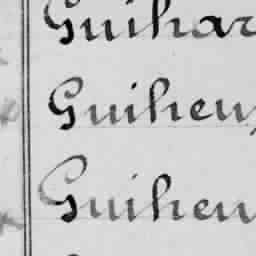 Guihar
Guiheu,
Guiheu